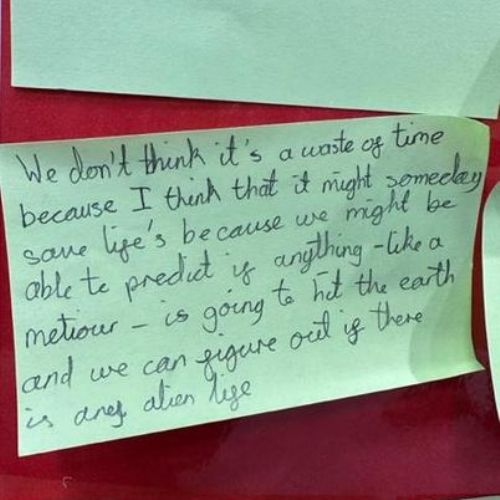 We don't think it's a waste of time
because I think that it might someday
save life's because we might be
able to predict if anything - like a
metiour - is going to hit the earth
and we can figure out if there
is any alien life